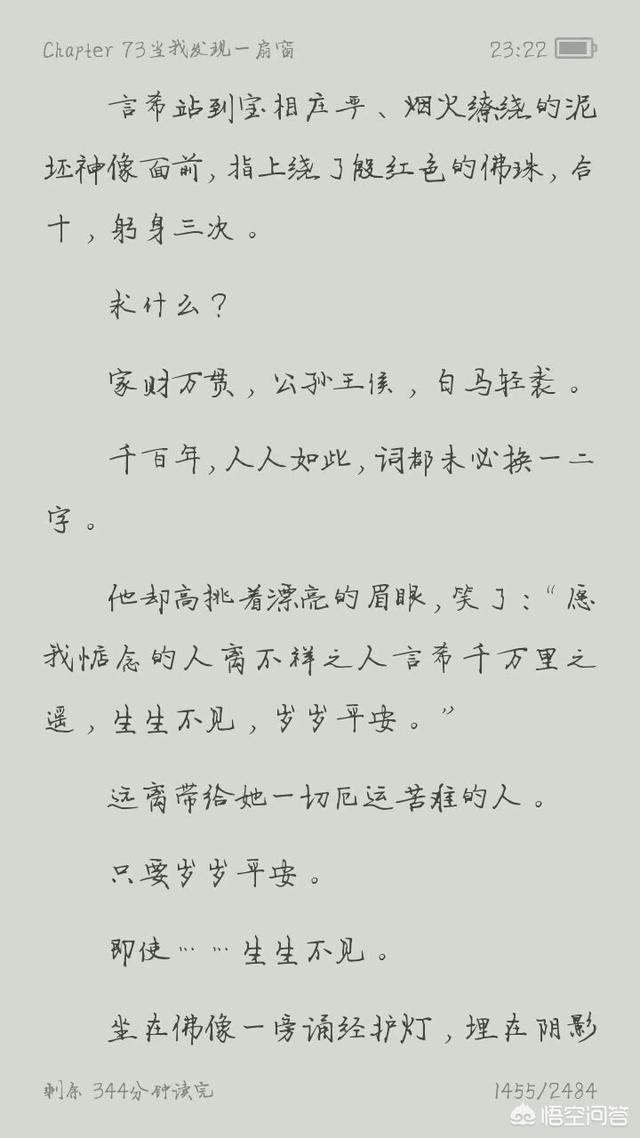 Chapter 73当我发现一扇窗 23:22
言希站到宝相庄严、烟火缭绕的泥
坯神像面前，指上绕了殷红色的佛珠，合
十，躬身三次。
求什么？
家财万贯，公孙王侯，白马轻裘。
千百年，人人如此，词都未必换一二
字。
他却高挑着漂亮的眉眼，笑了：“愿
我惦念的人离不祥之人言希千万里之
遥，生生不见，岁岁平安。”
远离带给她一切厄运苦难的人。
只要岁岁平安。
即使……生生不见。
坐在佛像一旁诵经护灯，埋在阴影
剩余 344分钟读完 1455/2484
悟空问答